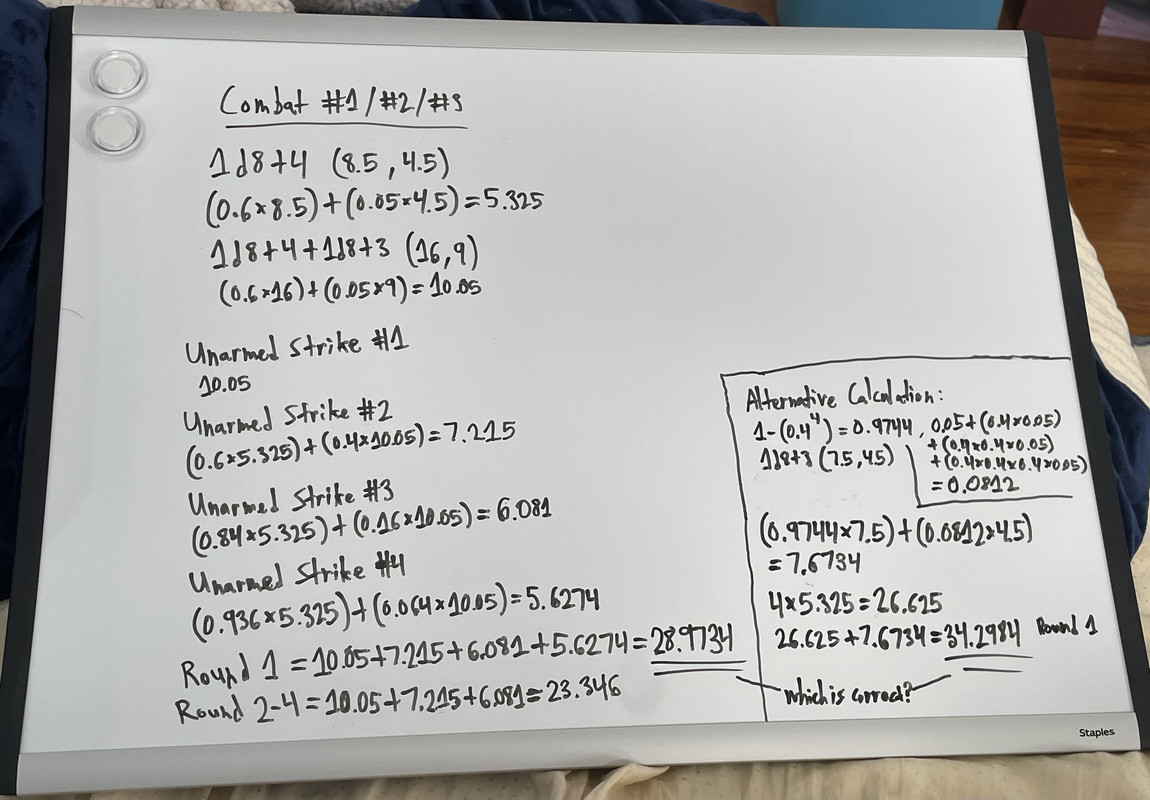 Combat #1/#2/#3
1d8+4 (8.5, 4.5)
(0.6×8.5)+(0.05×4.5)=5.325
1d8+4+1d8+3 (16,9)
(0.6×16)+(0.05×9)=10.05
Unarmed Strike #1
10.05
Unarmed Strike #2
(0.6×5.325)+(0.4×10.05)=7.215
Unarmed Strike #3
(0.84×5.325)+(0.16×10.05)=6.081
Unarmed Strike #4
(0.936×5.325)+(0.064×10.05)=5.6274
Round 1 =10.05+7.215+6.081+5.6274=28.9734
Round 2-4=10.05+7.215+6.081=23.346
Alternative Calculation:
1-(0.4⁴)=0.9744, 0.05+(0.4×0.05)
+(0.4×0.4×0.05)
1d8+3 (7.5, 4.5)
+(0.4×0.4×0.4×0.05)
=0.0812
(0.9744×7.5)+(0.0812×4.5)
=7.6734
4×5.325=26.625
26.625+7.6734=34.2984 Round 1
which is correct?
Staples